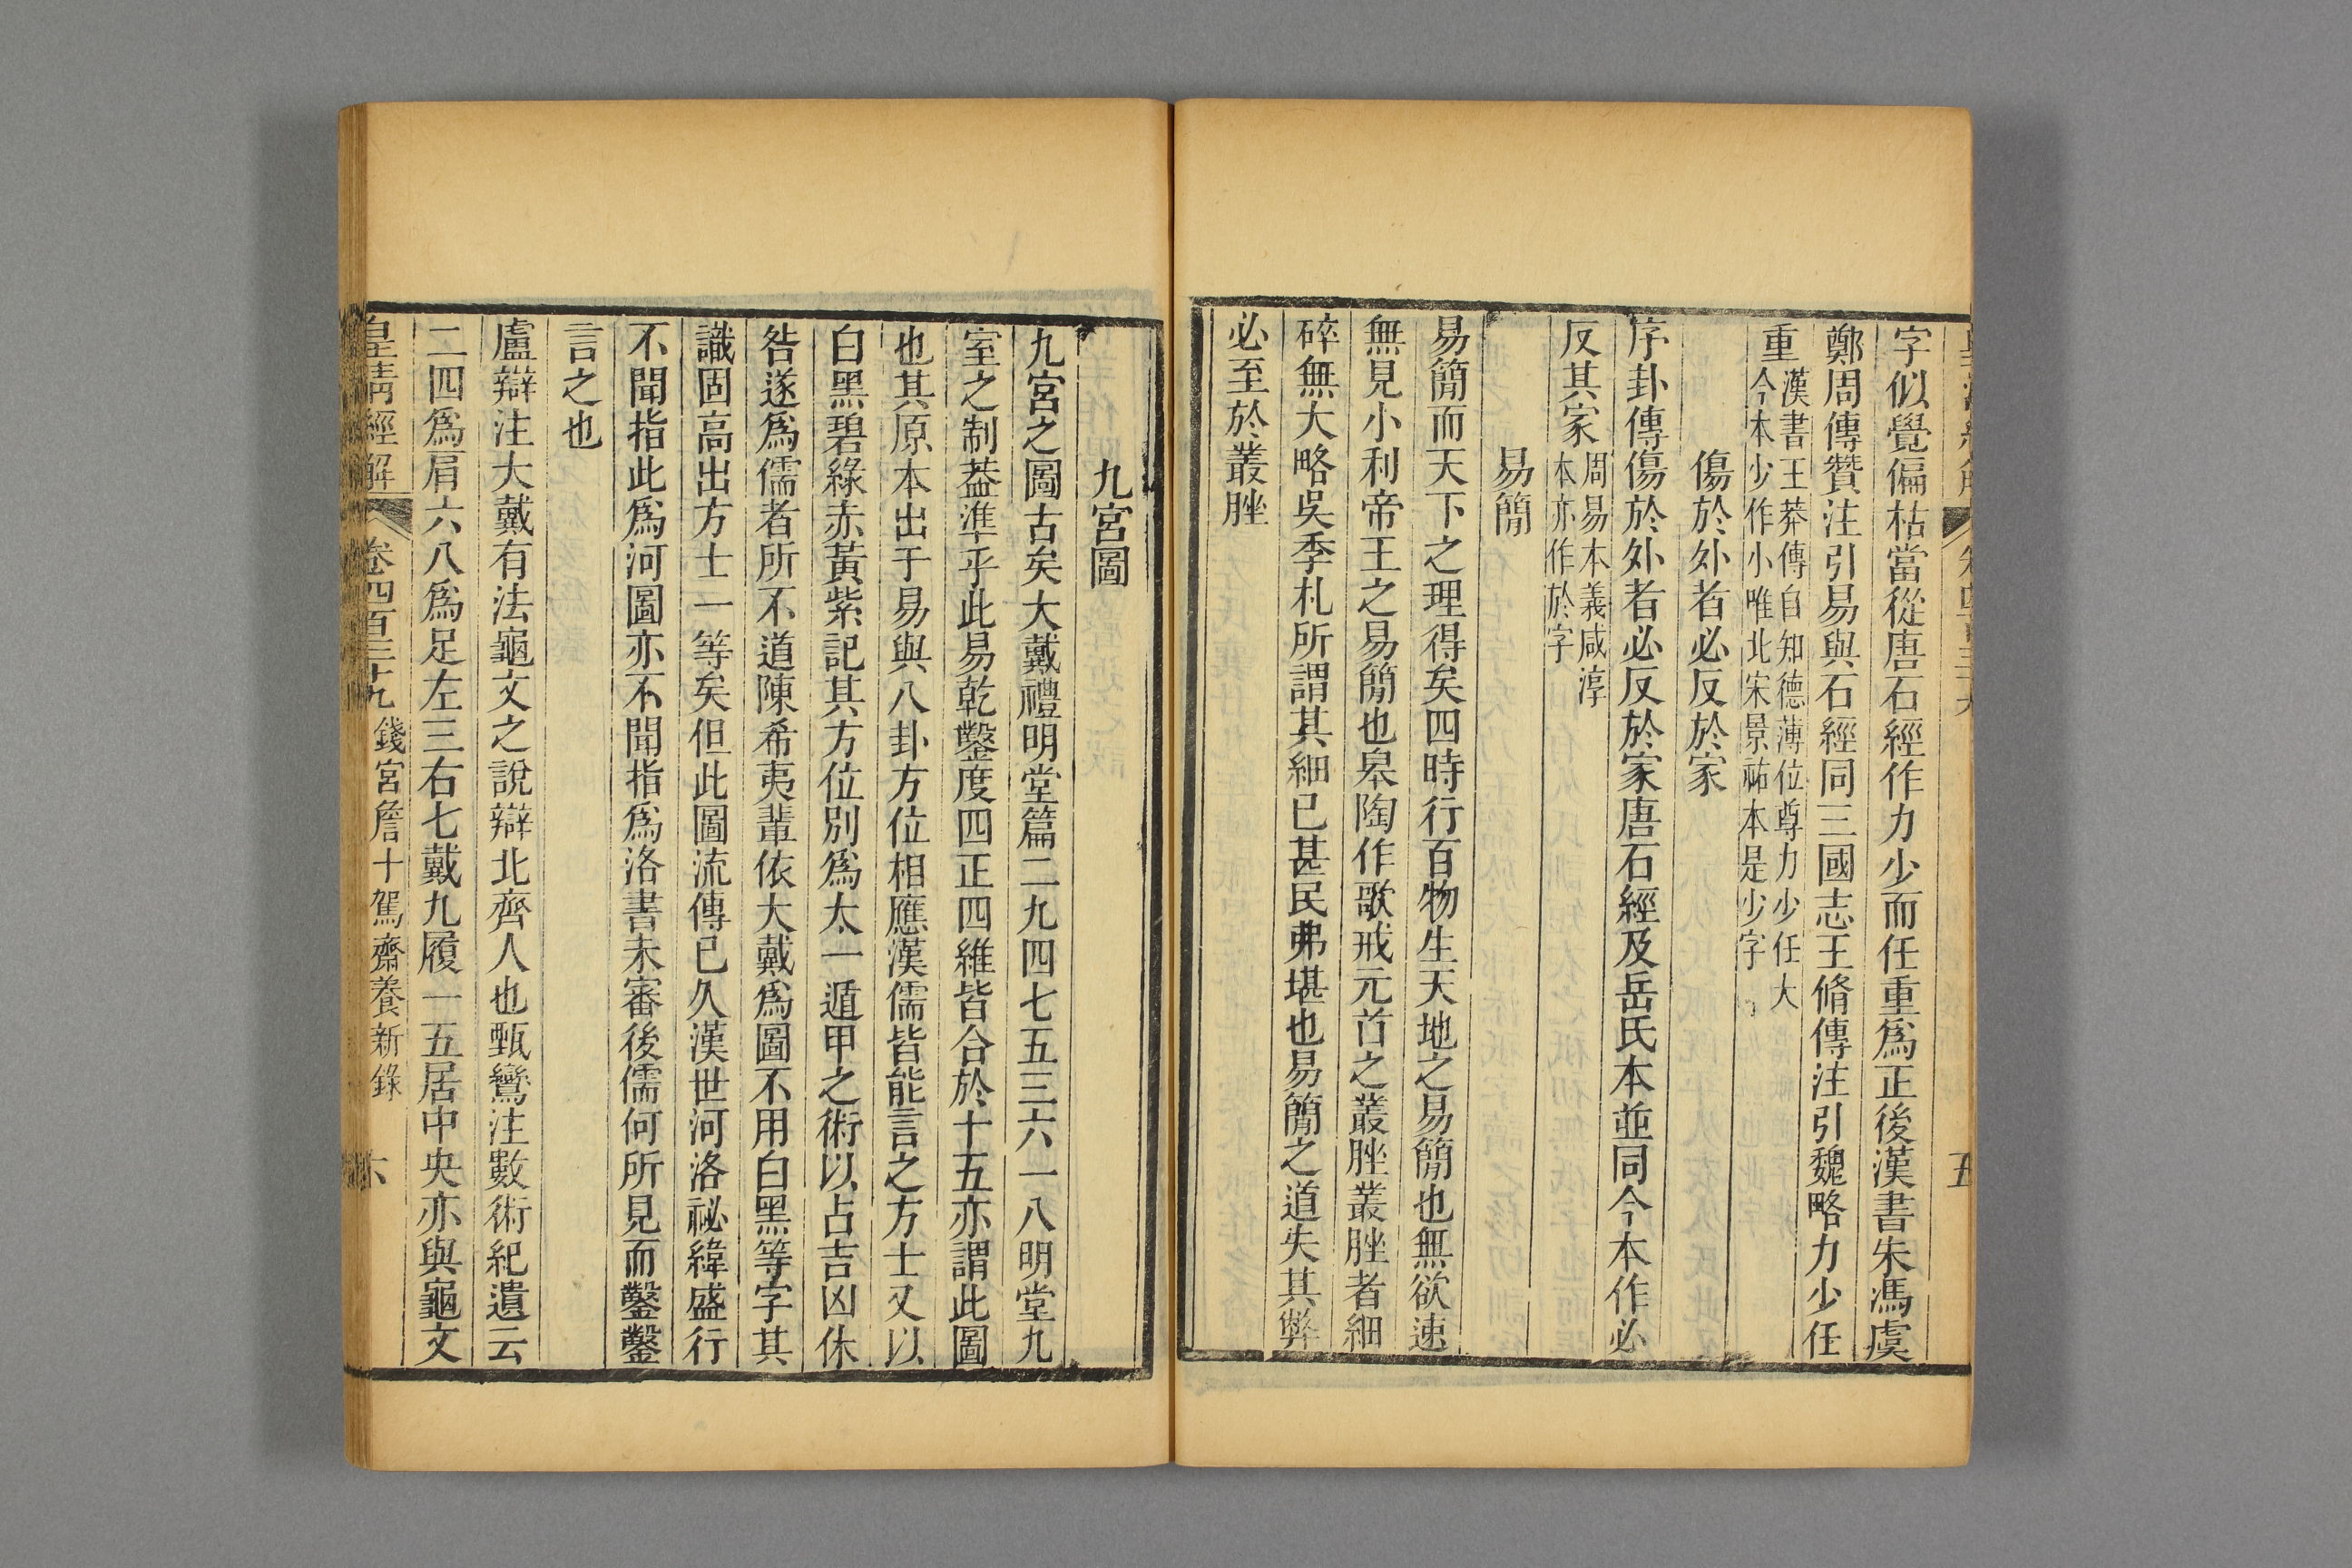 字似覺偏枯當從唐石經作力少而任重爲正後漢書朱馮虞
鄭周傳贊注引易與石經同三國志王脩傳注引魏略力少任
重漢書王莽傳自知德薄位尊力少任大今本少作小唯北宋景祐本是少字
傷於外者必反於家
序卦傳傷於外者必反於家唐石經及岳氏本並同今本作必
反其家周易本義咸淳本亦作於字
易簡
易簡而天下之理得矣四時行百物生天地之易簡也無欲速
無見小利帝王之易簡也皋陶作歌戒元首之叢脞叢脞者細
碎無大略吳季札所謂其細已甚民弗堪也易簡之道失其弊
必至於叢脞
九宮圖
九宮之圖古矣大戴禮明堂篇二九四七五三六一八明堂九
室之制葢準乎此易乾鑿度四正四維皆合於十五亦謂此圖
也其原本出于易與八卦方位相應漢儒皆能言之方士又以
白黑碧綠赤黃紫記其方位別爲太一遁甲之術以占吉凶休
咎遂爲儒者所不道陳希夷輩依大戴爲圖不用白黑等字其
識固高出方士一等矣但此圖流傳已久漢世河洛祕緯盛行
不聞指此爲河圖亦不聞指爲洛書未審後儒何所見而鑿鑿
言之也
盧辯注大戴有法龜文之說辯北齊人也甄鸞注數術紀遺云
二四爲肩六八爲足左三右七戴九履一五居中央亦與龜文
皇清經解 卷四百三十九 錢宮詹十駕齋養新錄 六